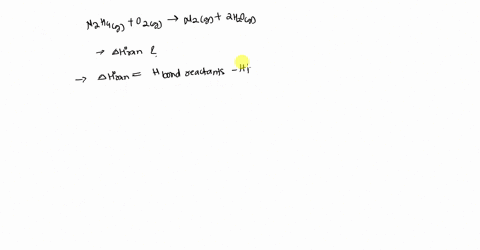 N2H4(g) + O2(g) → N2(g) + 2H2O(g)
→ ΔH°rxn ?
→ ΔH°rxn = H bond reactants - Hi